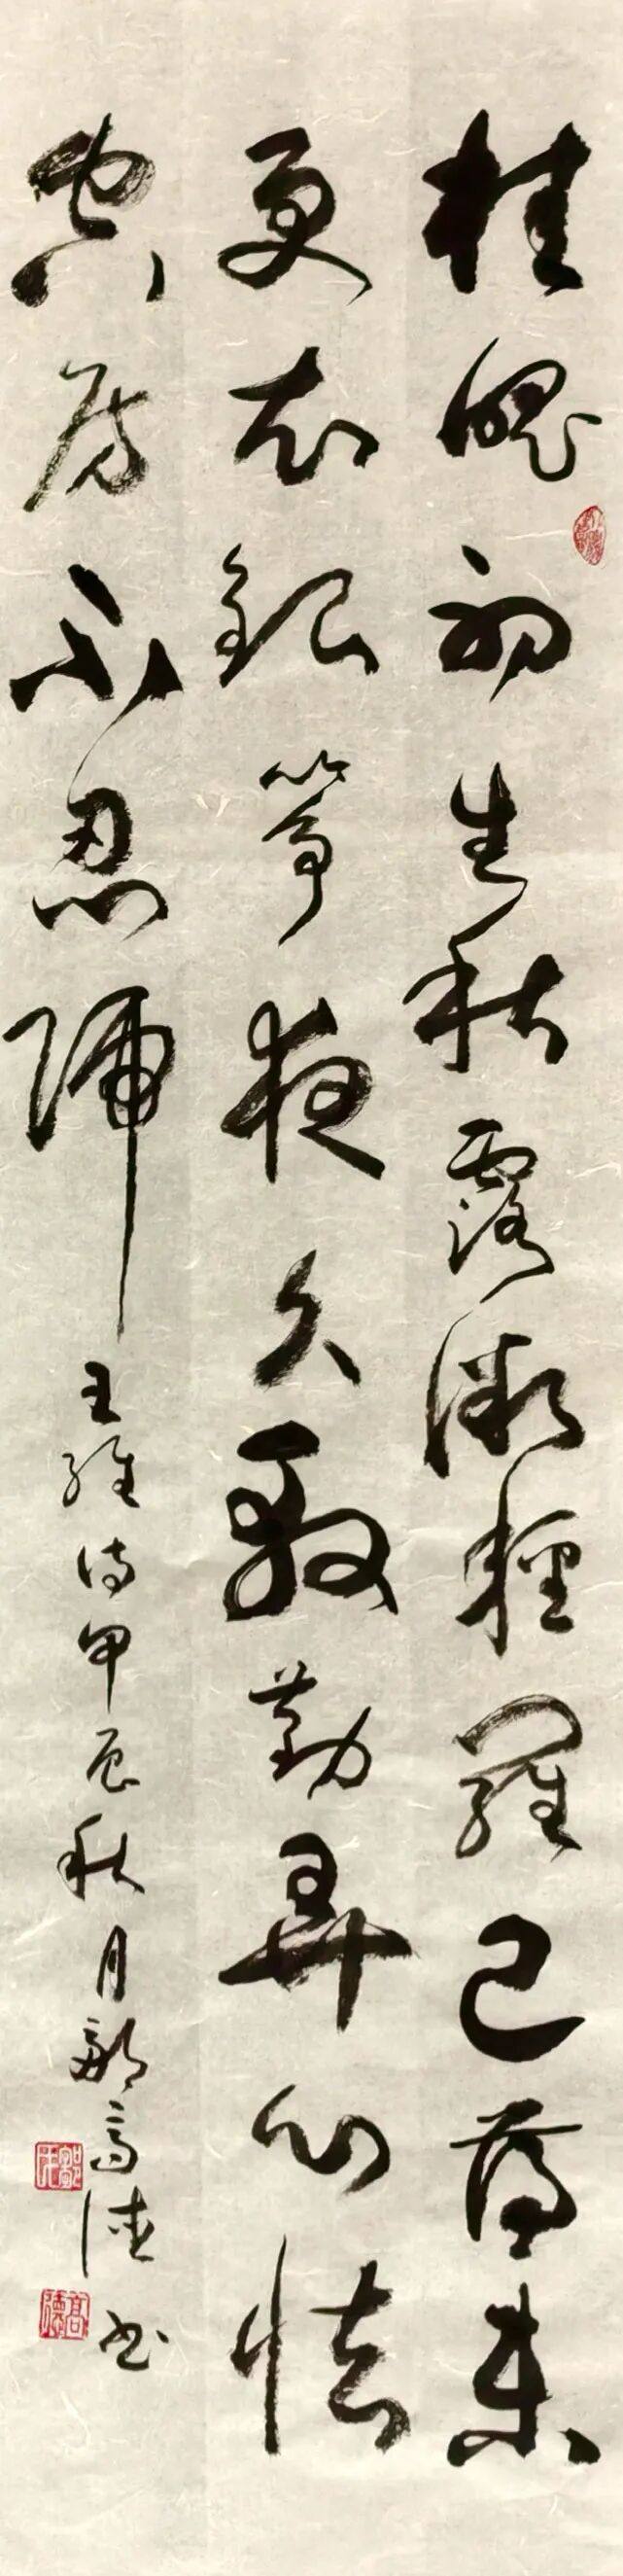 桂魄初生秋露微輕羅已薄未
更衣銀箏夜久殷勤弄心怯
空房不忍歸
王維詩甲辰秋月高德書
高德